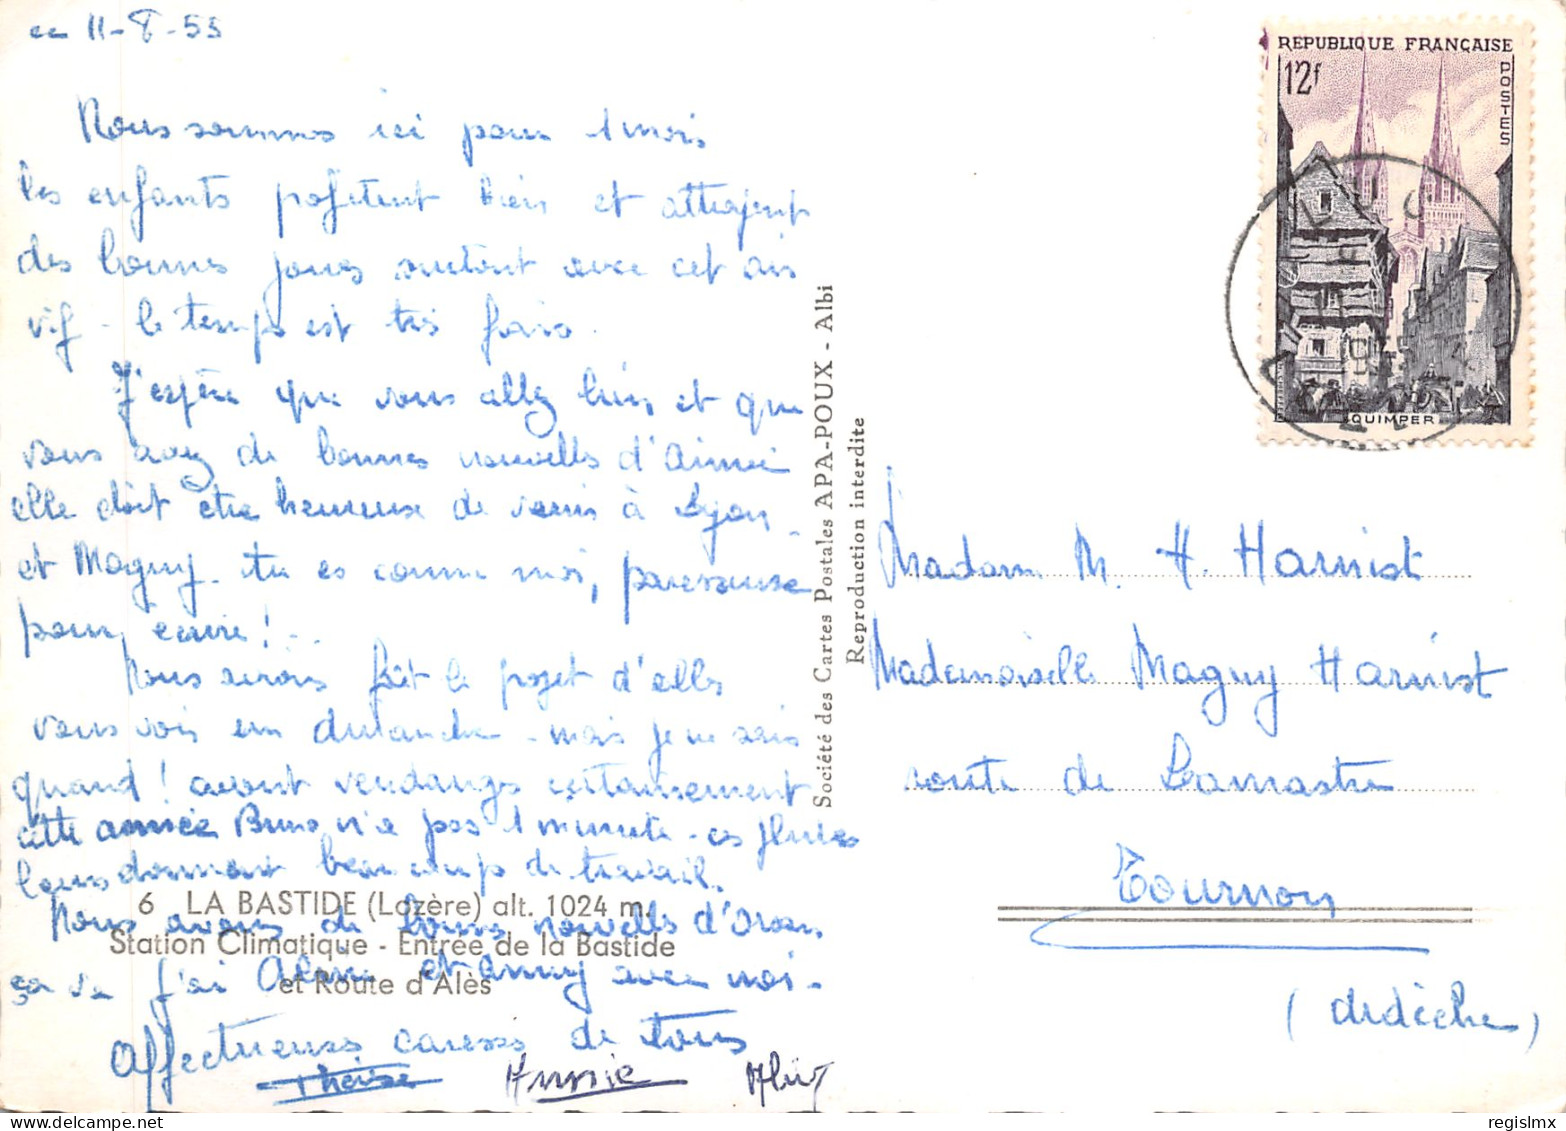 ce 11-8-55
Nous sommes ici pour 1 mois
les enfants profitent bien et attrapent
des bonnes joues surtout avec cet air
vif - le temps est très frais.
J'espère que vous allez bien et que
vous avez de bonnes nouvelles d'Aimée
elle doit etre heureuse de venir à Lyon -
et Maguy - tu es comme moi, paresseuse
pour ecrire! -
Nous avions fait le projet d'aller
vous voir un dimanche - mais je ne sais
quand! avant vendanges certainement
cette année Bruno n'a pas 1 minute - ces pluies
leur donnent beaucoup de travail.
Nous avons de bonnes nouvelles d'Oran,
ça va j'ai et Anny avec moi -
Affectueuses caresses de tous
Thérèse Annie
6 LA BASTIDE (Lozère) alt. 1024 m.
Station Climatique - Entrée de la Bastide
et Route d'Alès
Société des Cartes Postales APA-POUX - Albi
Reproduction interdite
REPUBLIQUE FRANÇAISE
12f
POSTES
QUIMPER
Madame M. H. Harnist
Mademoiselle Maguy Harnist
route de Lamastre
Tournon
(Ardèche)
regislmx